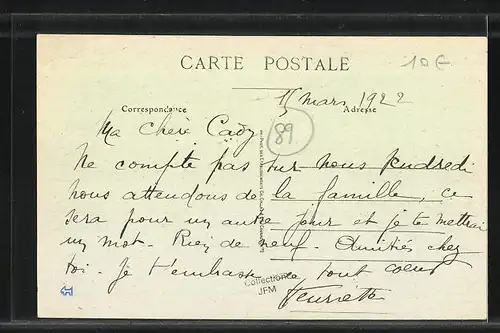 CARTE POSTALE
10€
15 mars 1922
Correspondance
Adresse
Ma chère Cady
89
Ne compte pas sur nous Vendredi
nous attendons de la famille, ce
sera pour un autre jour et je te mettrai
un mot. Rien de neuf. Amitiés chez
toi. Je t'embrasse de tout coeur
Collections
JFM
Henriette